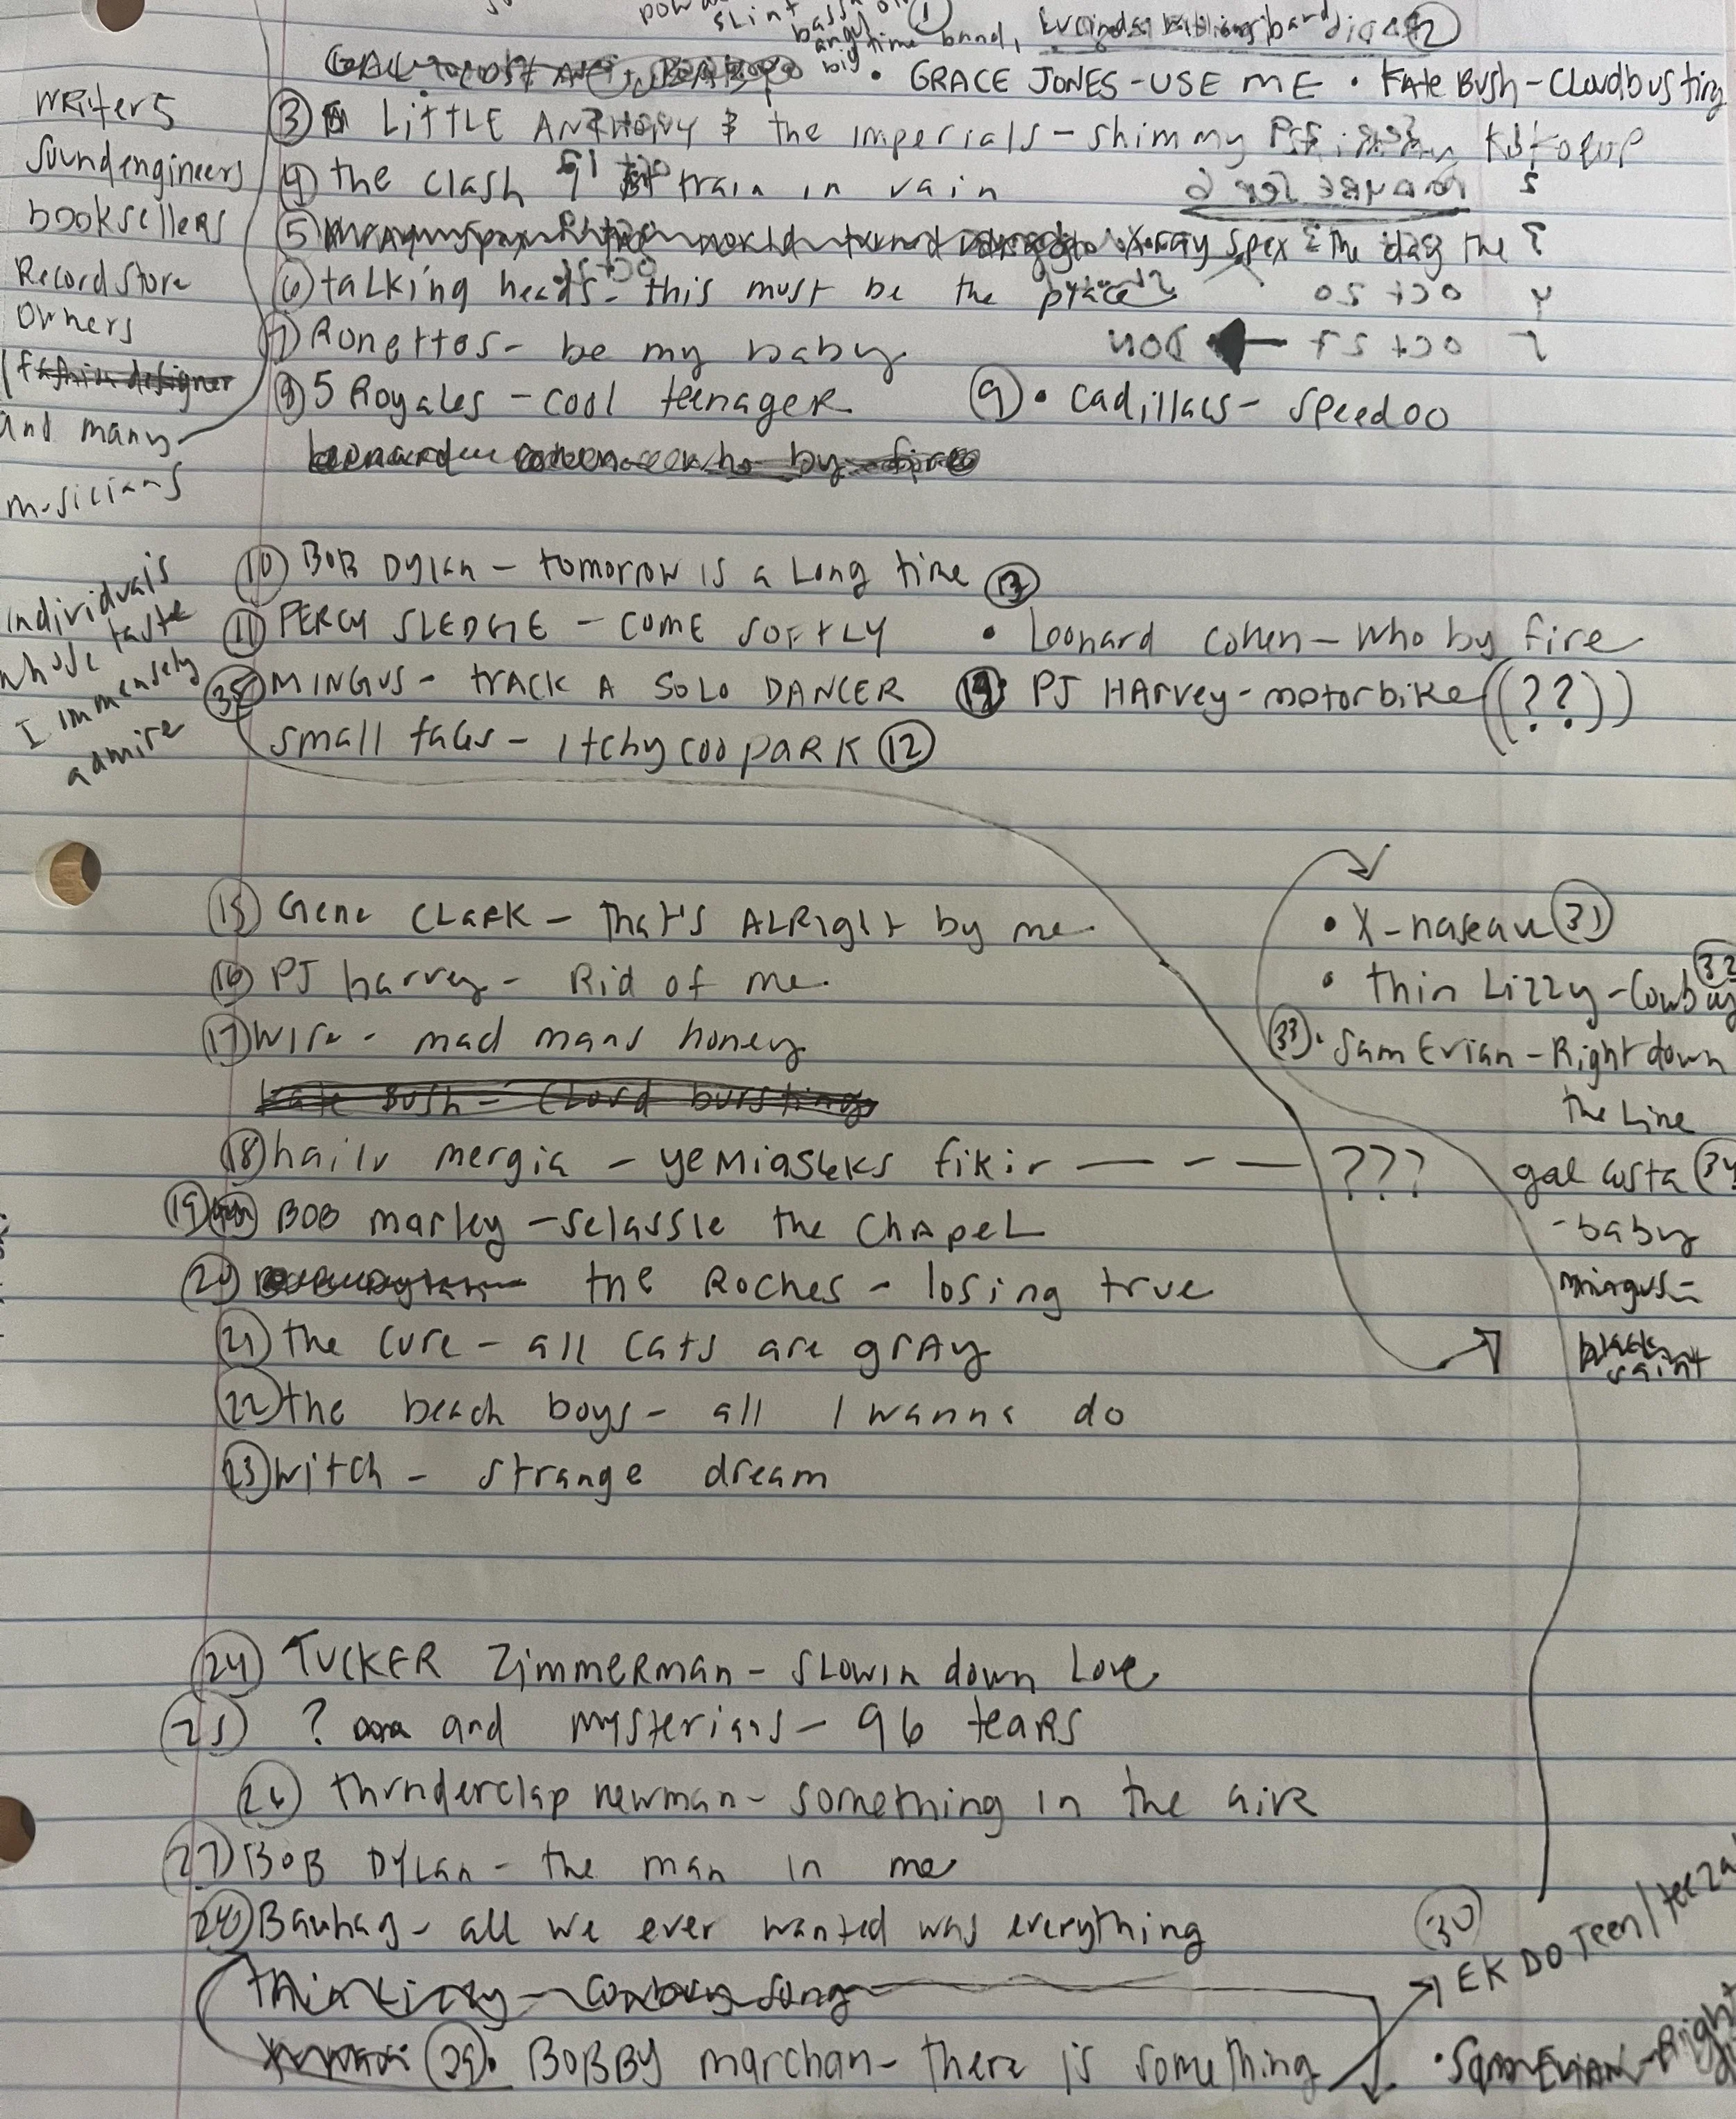 slint
big time band,
① ②
• GRACE JONES - USE ME • KATE BUSH - Cloudbusting
③ LITTLE ANTHONY & the imperials - shimmy
④ the clash train in vain
⑤ X-ray spex the day the
⑥ talking heads - this must be the place
oct 20
⑦ Ronettes - be my baby
oct 27
⑧ 5 Royales - cool teenager ⑨ • cadillacs - speedoo
Leonard cohen who by fire
⑩ BOB DYLAN - tomorrow is a long time ⑬
⑪ PERCY SLEDGE - COME SOFTLY • Leonard Cohen - who by fire
㉟ MINGUS - tRACK A SOLO DANCER ⑭ PJ HARVEY - motorbike ((??))
small faces - itchycoo paRK ⑫
writers
sound engineers
booksellers
Record store
owners
fashion designer
and many
musicians
individuals
whose taste
I immensely
admire
⑮ Gene CLARK - That's ALRight by me
⑯ PJ harvey - Rid of me
⑰ wire - mad mans honey
Kate Bush - Cloud bursting
⑱ hailu mergia - yemiasleks fikir — - — ???
⑲ BOB marley - selassie the ChAPEL
⑳ the Roches - losing true
㉑ the cure - all cats are grAy
㉒ the beach boys - all I wanna do
㉓ witch - strange dream
• X - naseau ㉛
• thin Lizzy - Cowboy ㉜
㉝ • Sam Evian - Right down
the Line
gal costa ㉞
- baby
mingus -
black
saint
㉔ TUCKER Zimmerman - SLowin down Love
㉕ ? and mysterians - 96 teaRS
㉖ thunderclap newman - something in the aiR
㉗ BOB DYLAN - the man in me
㉘ Bauhaus - all we ever wanted was everything
thin Lizzy - Cowboy song
㉙ • BOBBY marchan - there is something
㉚
EK DO Teen /
• Sam Evian - Right